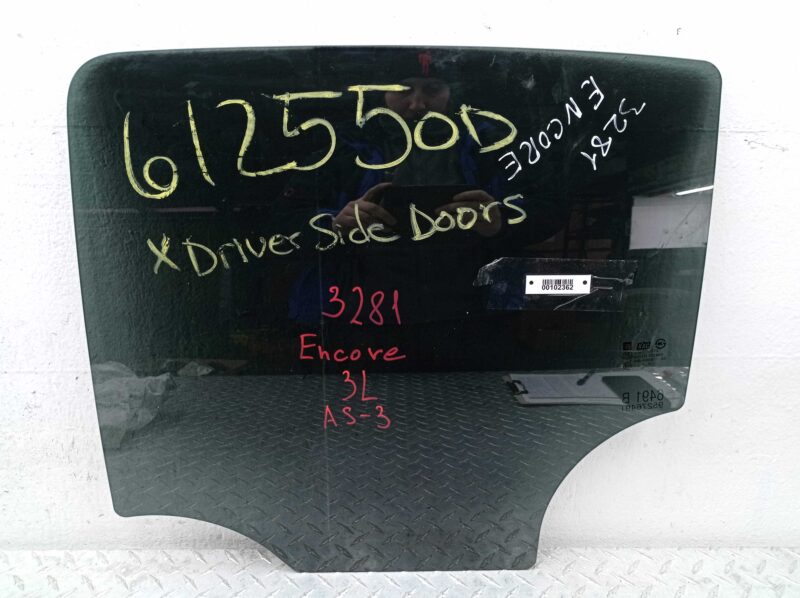 612550D
X Driver Side Doors
3281
ENCORE
00102362
3281
Encore
3L
AS-3
6491 B
95276491